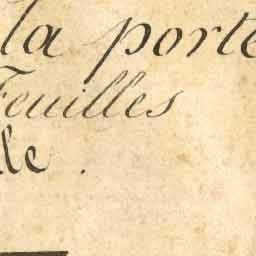 la porte
Feuilles
le .